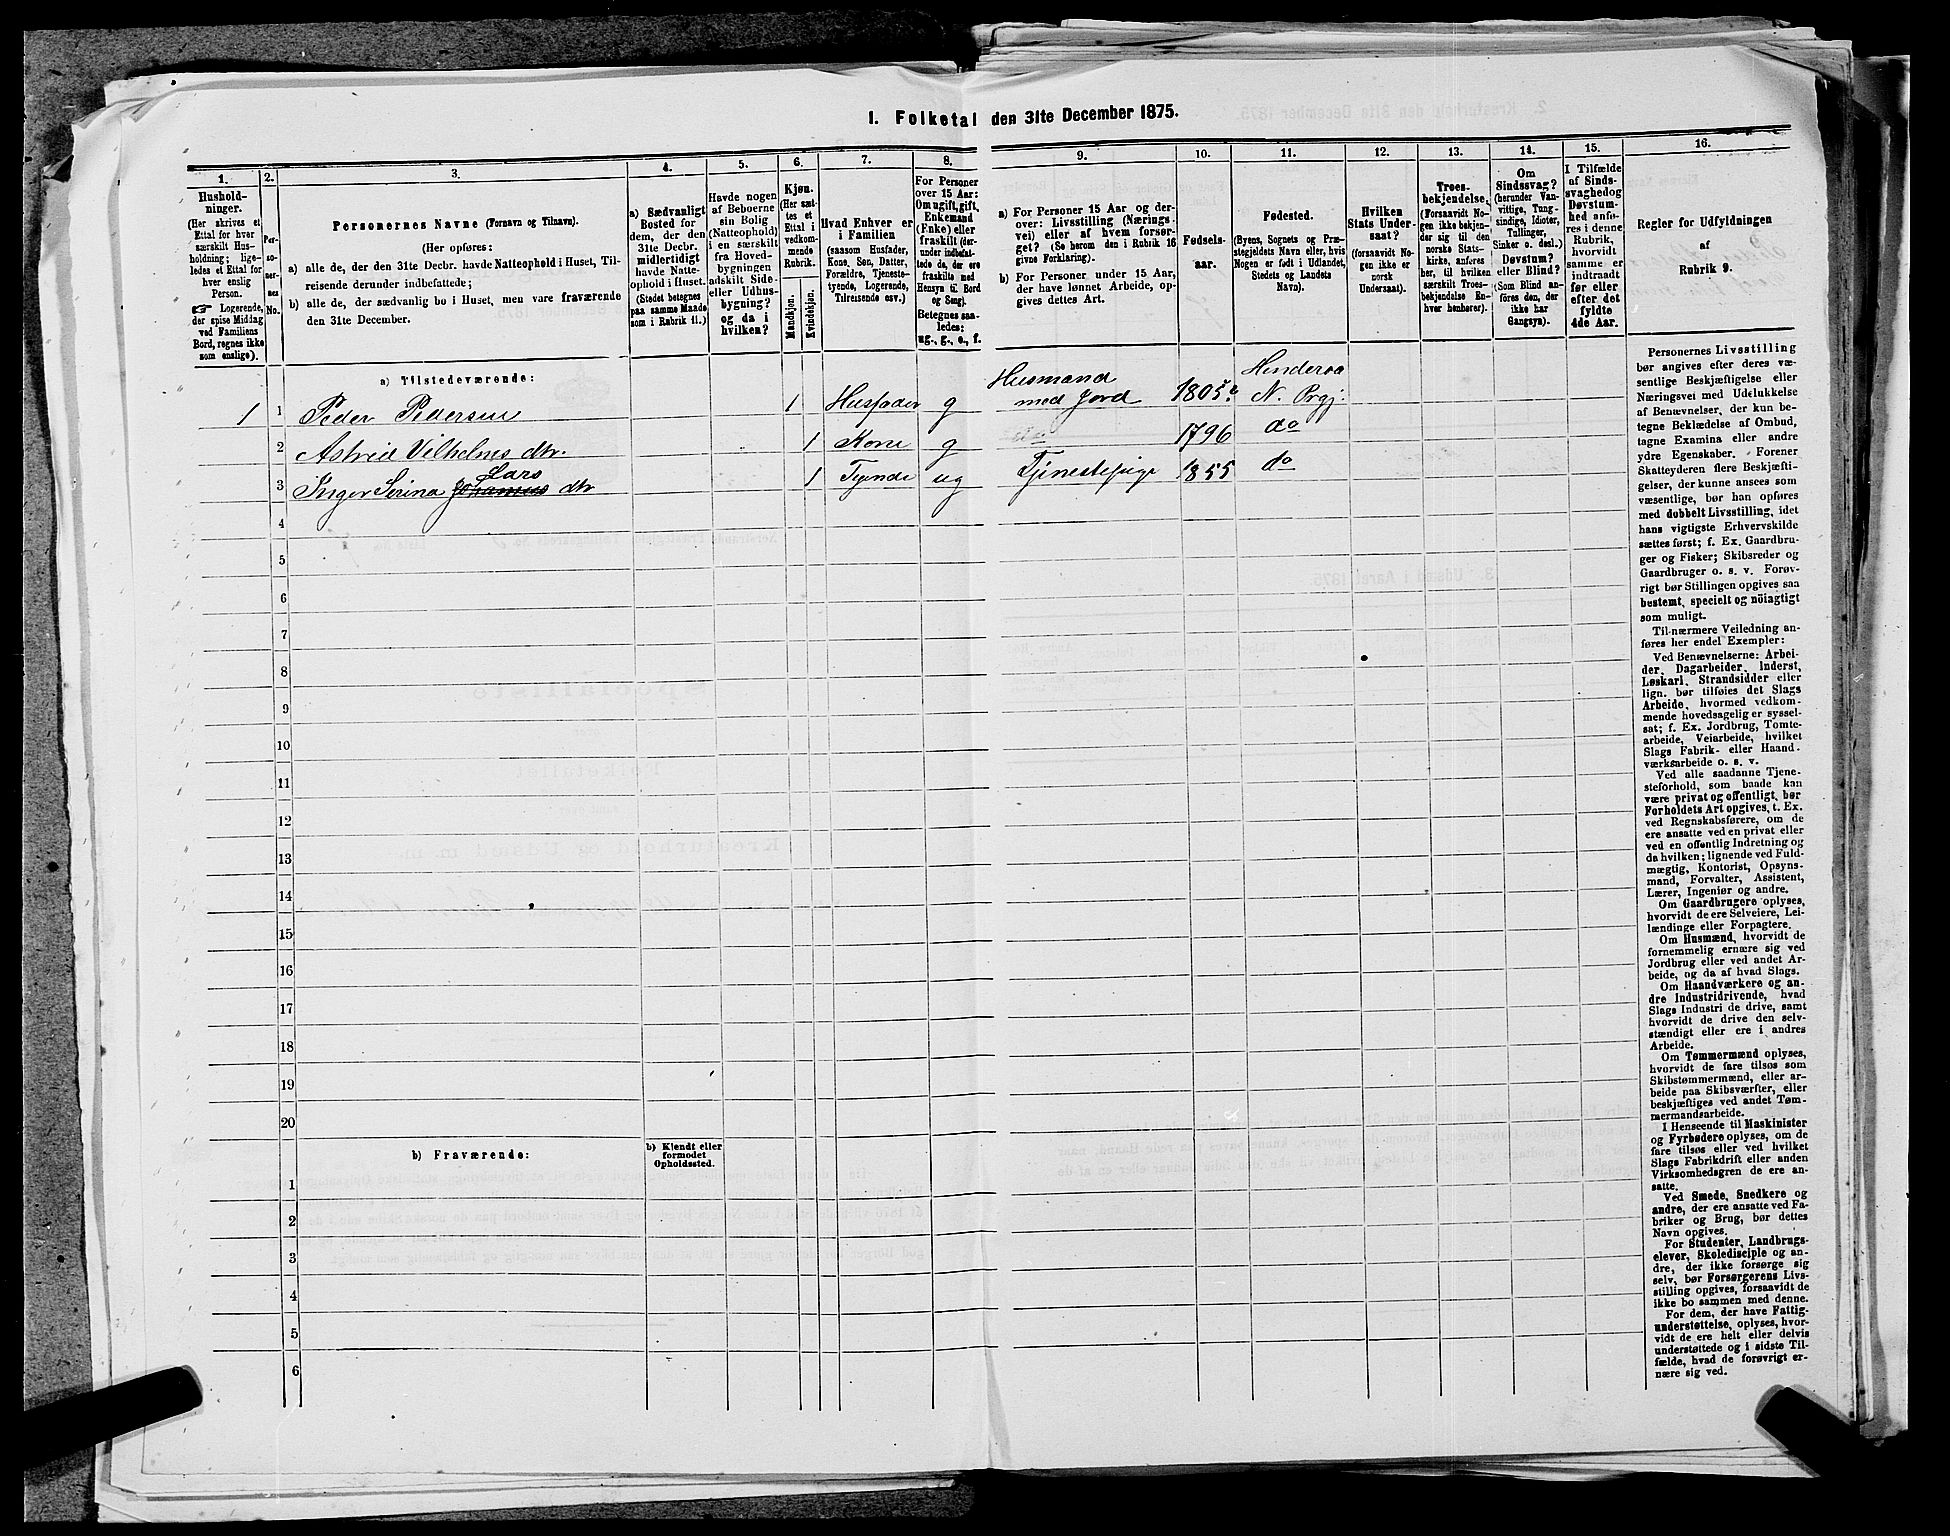 I. Folketal den 31te December 1875.
1.
2.
3.
4.
5.
6.
7.
8.
9.
10.
11.
12.
13.
14.
15.
16.
Hushold-
ninger.
(Her skrives et
Ettal for hver
særskilt Hus-
holdning; lige-
ledes et Ettal for
hver enslig
Person.
☞ Logerende,
der spise Middag
ved Familiens
Bord, regnes ikke
som enslige).
Per-
so-
ner-
nes
No.
Personernes Navne (Fornavn og Tilnavn).
(Her opføres:
a) alle de, der den 31te Decbr. havde Natteophold i Huset, Til-
reisende derunder indbefattede;
b) alle de, der sædvanlig bo i Huset, men vare fraværende
den 31te December.
a) Sædvanligt
Bosted for
dem, der den
31te Decbr.
midlertidigt
havde Natte-
ophold i Huset.
(Stedet betegnes
paa samme Maade
som i Rubrik 11.)
Havde nogen
af Beboerne
sin Bolig
(Natteophold)
i en særskilt
fra Hoved-
bygningen
adskilt Side-
eller Udhus-
bygning?
og da i
hvilken?
Kjøn.
(Her sæt-
tes et
Ettal i
vedkom-
mende
Rubrik.
Mandkjøn.
Kvindekjøn.
Hvad Enhver er
i Familien
(saasom Husfader,
Kone, Søn, Datter,
Forældre, Tjeneste-
tyende, Logerende,
Tilreisende osv.)
For Personer
over 15 Aar:
Om ugift, gift,
Enkemand
(Enke) eller
fraskilt (der-
under indbefat-
tede de, der ere
fraskilte med
Hensyn til Bord
og Seng).
Betegnes saa-
ledes:
ug., g., e., f.
a) For Personer 15 Aar og der-
over: Livsstilling (Nærings-
vei) eller af hvem forsør-
get? (Se herom den i Rubrik 16
givne Forklaring).
b) For Personer under 15 Aar,
der have lønnet Arbeide, op-
gives dettes Art.
Fødsels-
aar.
Fødested.
(Byens, Sognets og Præ-
stegjeldets Navn eller, hvis
Nogen er født i Udlandet,
Stedets og Landets
Navn).
Hvilken
Stats Under-
saat?
(forsaavidt No-
gen ikke er
norsk
Undersaat).
Troes-
bekjendelse,
(Forsaavidt No-
gen ikke bekjen-
der sig til den
norske Stats-
kirke, anføres
her, til hvilken
særskilt Troes-
bekjendelse En-
hver henhører).
Om
Sindssvag?
(herunder Van-
vittige, Tung-
sindige, Idioter,
Tullinger,
Sinker o. desl.).
Døvstum?
eller Blind?
(Som Blind an-
føres den, der
ikke har
Gangsyn).
I Tilfælde
af Sinds-
svaghedog
Døvstum-
hed anfø-
res i denne
Rubrik,
hvorvidt
samme er
indtraadt
før eller
efter det
fyldte
4de Aar.
Regler for Udfyldningen
af
Rubrik 9.
a) Tilstedeværende:
1 1 Peder Pedersen 1 Husfader g Husmand med Jord 1805 Hinderaa N. Prgj.
2 Astrid Vilhelms dtr. 1 Kone g 1796 do
3 Inger Serina Johannes Lars dtr 1 Tyende ug Tjenestepige 1855 do
4
5
6
7
8
9
10
11
12
13
14
15
16
17
18
19
20
b) Fraværende:
b) Kjendt eller
formodet
Opholdssted.
1
2
3
4
5
6
Personernes Livsstilling
bør angives efter deres væ-
sentlige Beskjæftigelse eller
Næringsvei med Udelukkelse
af Benævnelser, der kun be-
tegne Beklædelse af Ombud,
tagne Examina eller andre
ydre Egenskaber. Forener
Skatteyderen flere Beskjæfti-
gelser, der kunne ansees som
væsentlige, bør han opføres
med dobbelt Livsstilling, idet
hans vigtigste Erhvervskilde
sættes først; f. Ex. Gaardbru-
ger og Fisker; Skibsreder og
Gaardbruger o. s. v. Forøv-
rigt bør Stillingen opgives saa
bestemt, specielt og nöiagtigt
som muligt.
Til nærmere Veiledning an-
føres her endel Exempler:
Ved Benævnelserne: Arbei-
der, Dagarbeider, Inderst,
Løskarl, Strandsidder eller
lign. bør tilføies det Slags
Arbeide, hvormed vedkom-
mende hovedsagelig er syssel-
sat; f. Ex. Jordbrug, Tomte-
arbeide, Veiarbeide, hvilket
Slags Fabrik- eller Haand-
værksarbeide o. s. v.
Ved alle saadanne Tjene-
steforhold, som baade kan
være privat og offentligt, bør
Forholdets Art opgives, t. Ex.
ved Regnskabsførere, om de
ere ansatte ved en privat eller
ved en offentlig Indretning og
da hvilken; lignende ved Fuld-
mægtig, Kontorist, Opsyns-
mand, Forvalter, Assistent,
Lærer, Ingeniør og andre.
Om Gaardbrugere oplyses,
hvorvidt de ere Selveiere, Lei-
lændinge eller Forpagtere.
Om Husmænd, hvorvidt de
fornemmelig ernære sig ved
Jordbrug eller ved andet Ar-
beide, og da af hvad Slags.
Om Haandværkere og an-
dre Industridrivende, hvad
Slags Industri de drive, samt
hvorvidt de drive den selv-
stændigt eller ere i andres
Arbeide.
Om Tømmermænd oplyses,
hvorvidt de fare tilsøs som
Skibstømmermænd, eller ar-
beide paa Skibsværfter, eller
beskjæftiges ved andet Tøm-
mermandsarbeide.
I Henseende til Maskinister
og Fyrbødere oplyses, om de
fare tilsøs eller ved hvilket
Slags Fabrikdrift eller anden
Virksomhedsgren de ere an-
satte.
Ved Smede, Snedkere og
andre, der ere ansatte ved Fa-
briker og Brug, bør dettes
Navn opgives.
For Studenter, Landbrugs-
elever, Skoledisciple og an-
dre, der ikke forsørge sig
selv, bør Forsørgerens Livs-
stilling opgives, forsaavidt de
ikke bo sammen med denne.
For dem, der have Fattig-
understøttelse, oplyses, hvor-
vidt de ere helt eller delvis
understøttede og i sidste Til-
fælde, hvad de forøvrigt er-
nære sig ved.